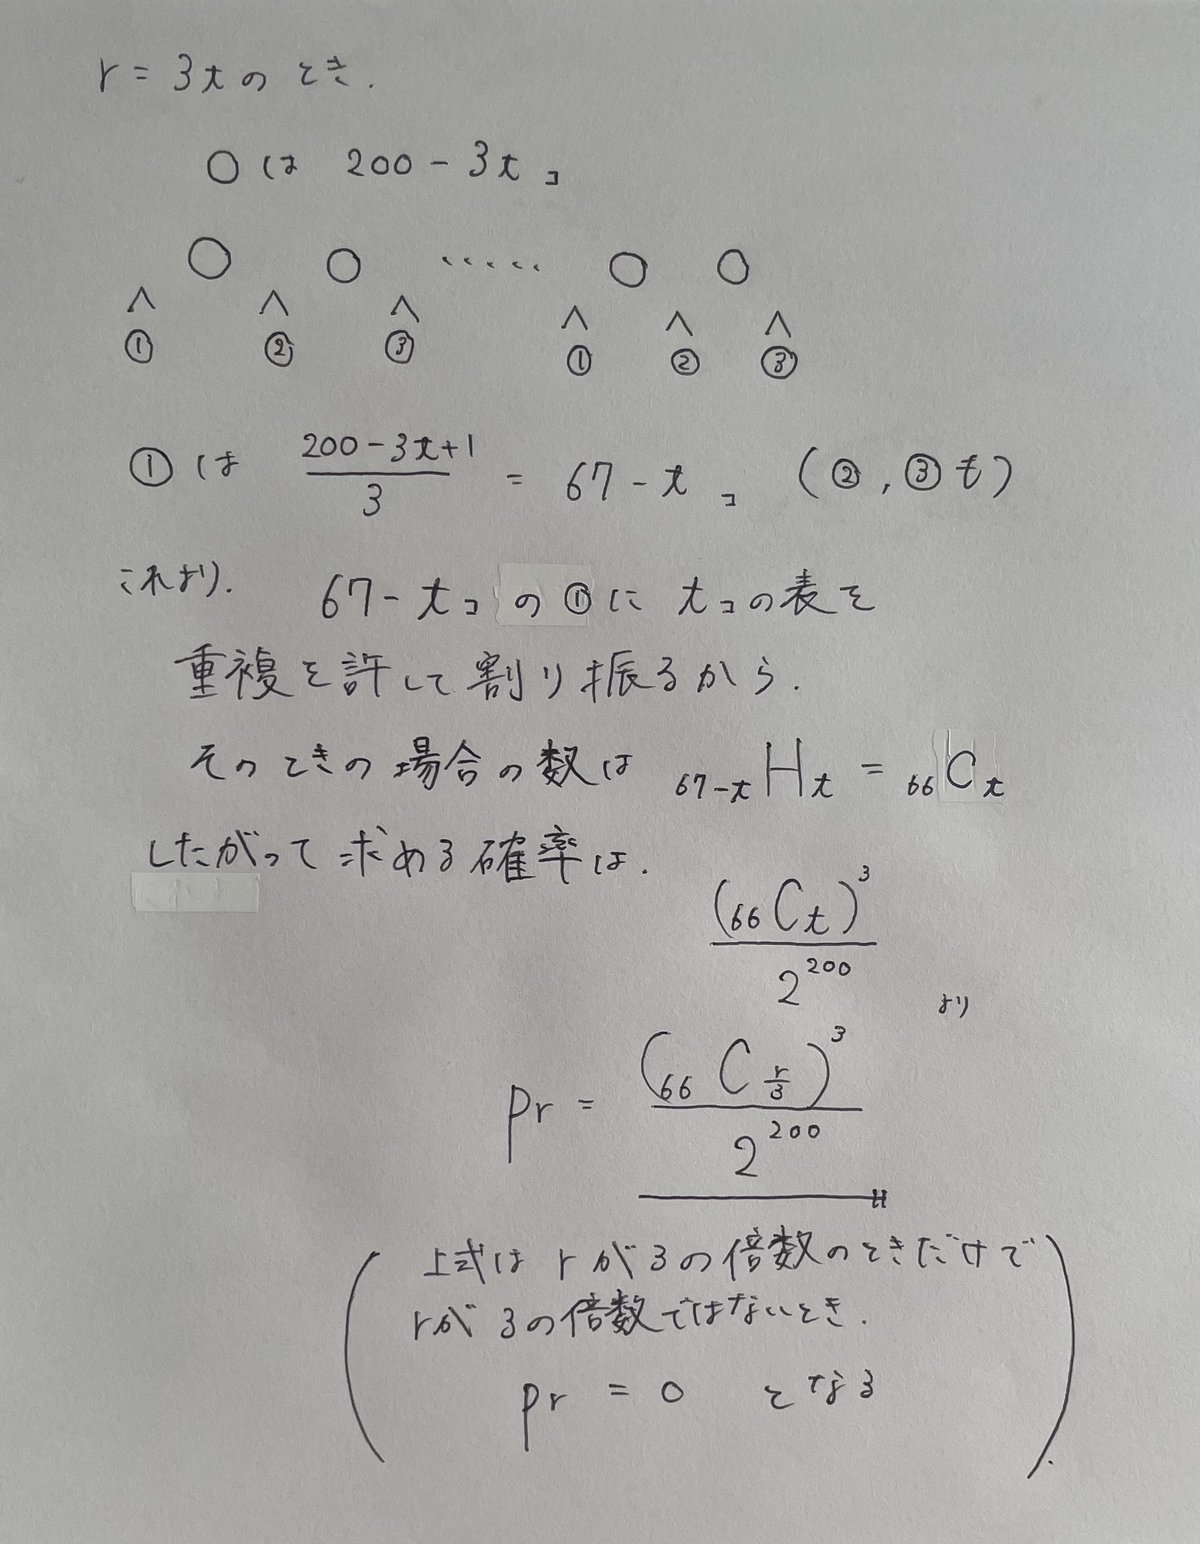 r = 3t のとき.
○は 200 - 3t コ
○ ○ ・・・・・ ○ ○
∧ ∧ ∧ ∧ ∧ ∧
① ② ③ ① ② ③
①は (200-3t+1)/3 = 67-t コ (②,③も)
これより. 67-tコの①に tコの表を
重複を許して割り振るから.
そのときの場合の数は ₆₇₋ₜHₜ = ₆₆Cₜ
したがって求める確率は.
(₆₆Cₜ)³/2²⁰⁰ より
pr = (₆₆C_{r/3})³/2²⁰⁰
( 上式は r が 3の倍数のときだけで
rが 3の倍数ではないとき.
pr = 0 となる ).